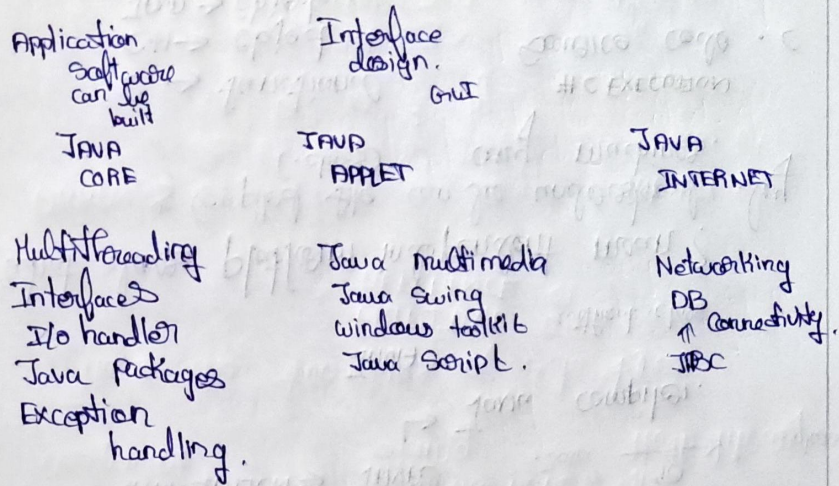 Application
Software
can be
built
JAVA
CORE
Multithreading
Interfaces
I/o handler
Java packages
Exception
handling.
Interface
design.
GUI
JAVA
APPLET
Java multimedia
Java swing
windows toolkit
Java Script.
JAVA
INTERNET
Networking
DB
↑ Connectivity.
JDBC